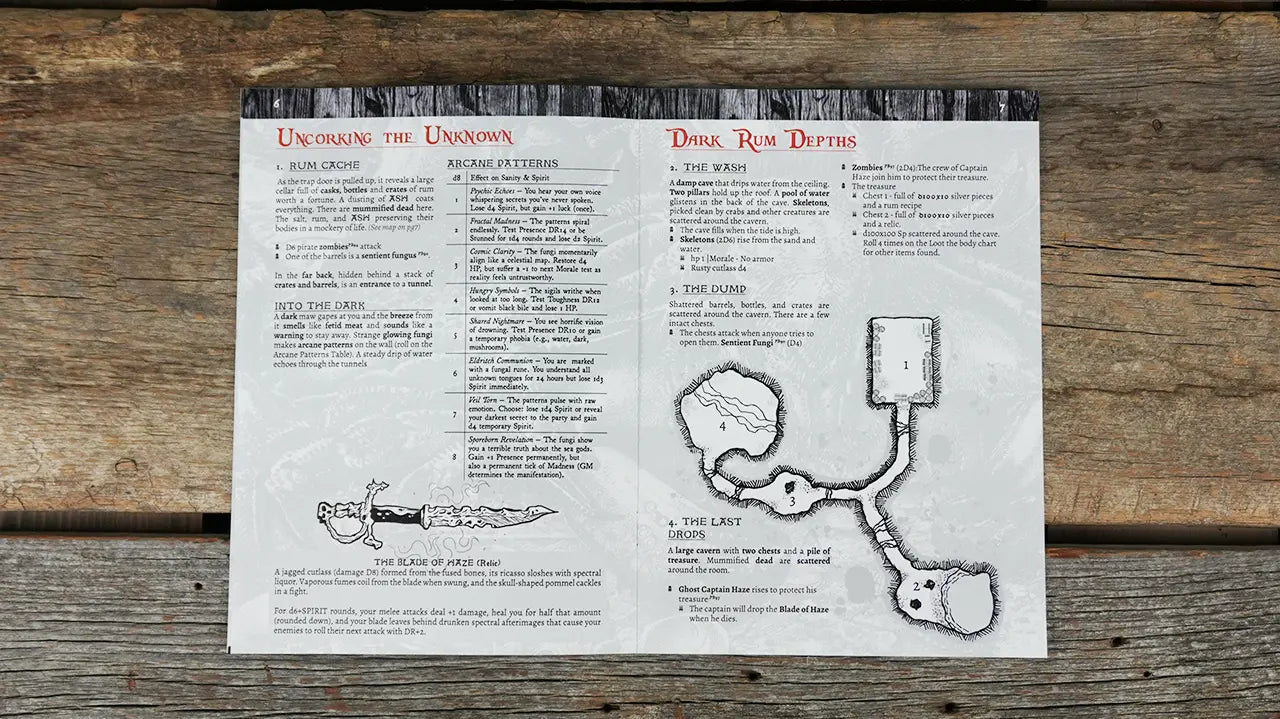 6
Uncorking the Unknown
1. RUM CACHE
As the trap door is pulled up, it reveals a large
cellar full of casks, bottles and crates of rum
worth a fortune. A dusting of ASH coats
everything. There are mummified dead here.
The salt, rum, and ASH preserving their
bodies in a mockery of life. (See map on pg7)
D6 pirate zombies attack
One of the barrels is a sentient fungus
In the far back, hidden behind a stack of
crates and barrels, is an entrance to a tunnel.
INTO THE DARK
A dark maw gapes at you and the breeze from
it smells like fetid meat and sounds like a
warning to stay away. Strange glowing fungi
makes arcane patterns on the wall (roll on the
Arcane Patterns Table). A steady drip of water
echoes through the tunnels
ARCANE PATTERNS
d8 Effect on Sanity & Spirit
1 Psychic Echoes – You hear your own voice
whispering secrets you've never spoken.
Lose d4 Spirit, but gain +1 luck (once).
2 Fractal Madness – The patterns spiral
endlessly. Test Presence DR14 or be
Stunned for 1d4 rounds and lose d2 Spirit.
3 Cosmic Clarity – The fungi momentarily
align like a celestial map. Restore d4
HP, but suffer a -1 to next Morale test as
reality feels untrustworthy.
4 Hungry Symbols – The sigils writhe when
looked at too long. Test Toughness DR12
or vomit black bile and lose 1 HP.
5 Shared Nightmare – You see horrific vision
of drowning. Test Presence DR10 or gain
a temporary phobia (e.g., water, dark,
mushrooms).
6 Eldritch Communion – You are marked
with a fungal rune. You understand all
unknown tongues for 24 hours but lose 1d3
Spirit immediately.
7 Veil Torn – The patterns pulse with raw
emotion. Choose: lose 1d4 Spirit or reveal
your darkest secret to the party and gain
d4 temporary Spirit.
8 Sporeborn Revelation – The fungi show
you a terrible truth about the sea gods.
Gain +1 Presence permanently, but
also a permanent tick of Madness (GM
determines the manifestation).
THE BLADE OF HAZE (Relic)
A jagged cutlass (damage D8) formed from the fused bones, its ricasso sloshes with spectral
liquor. Vaporous fumes coil from the blade when swung, and the skull-shaped pommel cackles
in a fight.
For d6+SPIRIT rounds, your melee attacks deal +1 damage, heal you for half that amount
(rounded down), and your blade leaves behind drunken spectral afterimages that cause your
enemies to roll their next attack with DR+2.
7
Dark Rum Depths
2. THE WASH
A damp cave that drips water from the ceiling.
Two pillars hold up the roof. A pool of water
glistens in the back of the cave. Skeletons,
picked clean by crabs and other creatures are
scattered around the cavern.
The cave fills when the tide is high.
Skeletons (2D6) rise from the sand and
water.
hp 1 |Morale - No armor
Rusty cutlass d4
3. THE DUMP
Shattered barrels, bottles, and crates are
scattered around the cavern. There are a few
intact chests.
The chests attack when anyone tries to
open them. Sentient Fungi (D4)
4. THE LAST
DROPS
A large cavern with two chests and a pile of
treasure. Mummified dead are scattered
around the room.
Ghost Captain Haze rises to protect his
treasure
The captain will drop the Blade of Haze
when he dies.
Zombies (2D4) The crew of Captain
Haze join him to protect their treasure.
The treasure
Chest 1 - full of d100x10 silver pieces
and a rum recipe
Chest 2 - full of d100x10 silver pieces
and a relic.
d100x100 Sp scattered around the cave.
Roll 4 times on the Loot the body chart
for other items found.
1
4
3
2